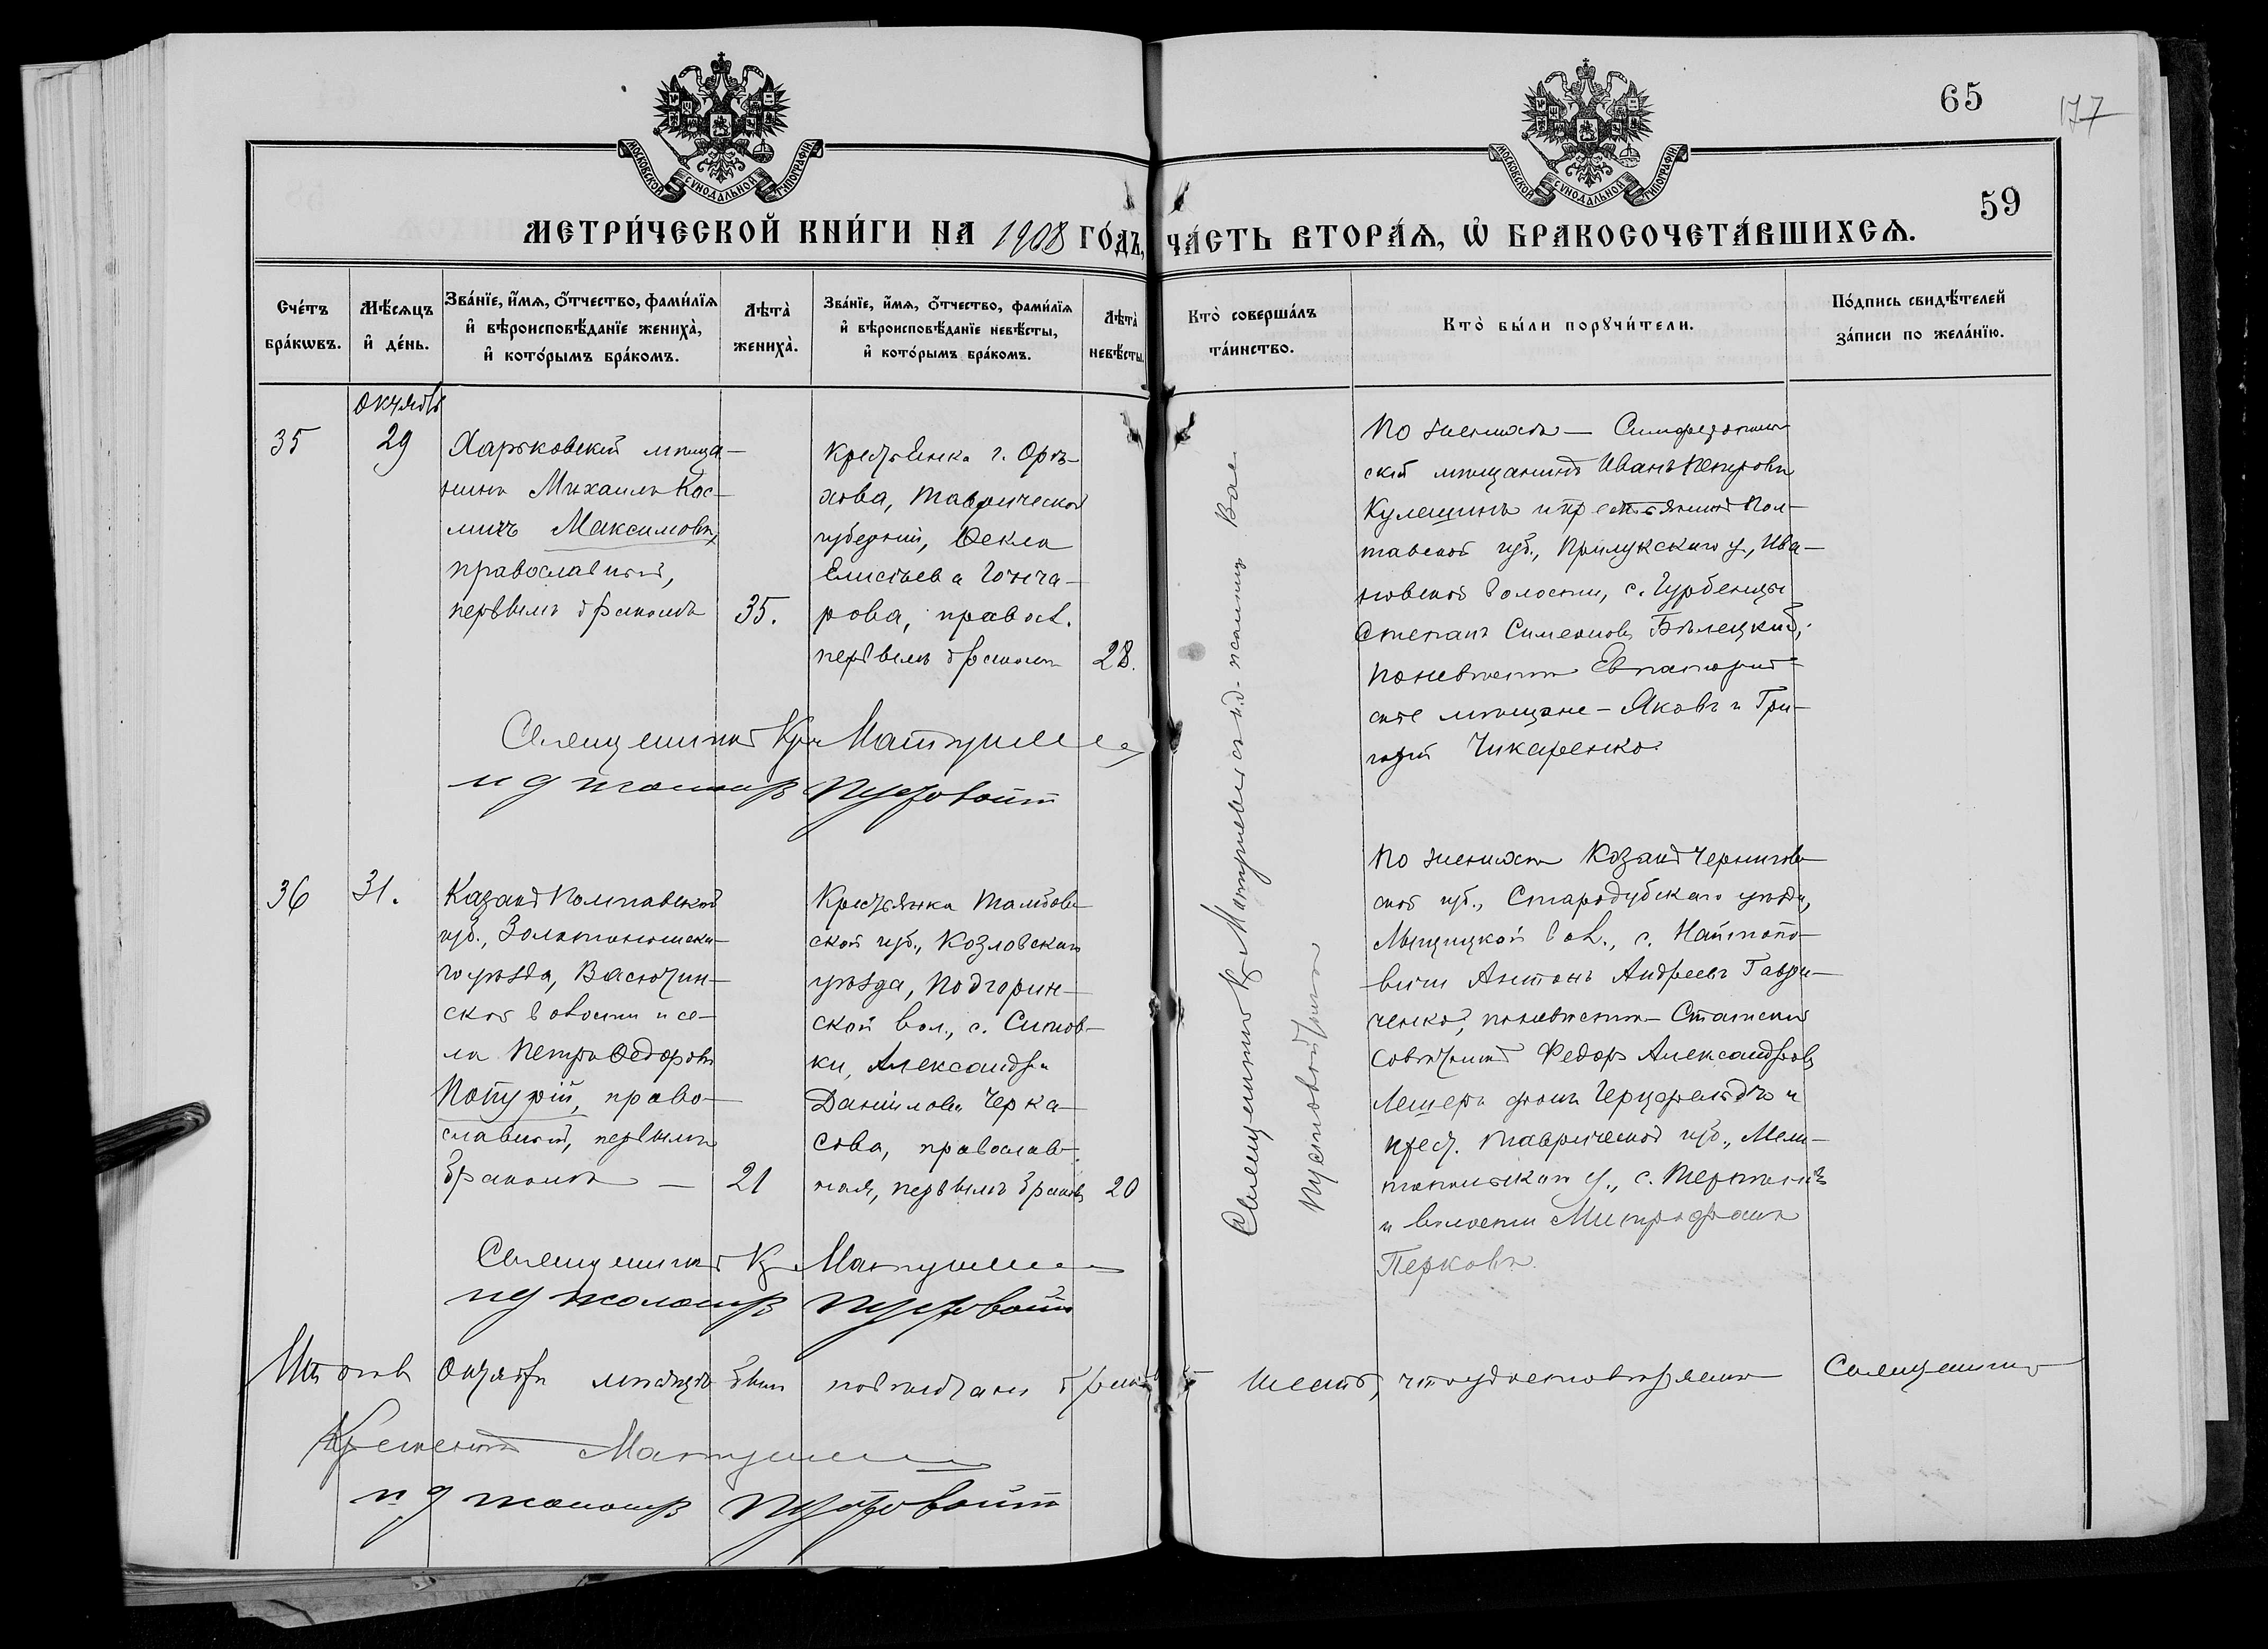 65
177
59
МОСКОВСКОЙ СУНОДАЛЬНОЙ ТИПОГРАФІИ
МОСКОВСКОЙ СУНОДАЛЬНОЙ ТИПОГРАФІИ
МЕТРИ́ЧЕСКОЙ КНИ́ГИ НА 1908 ГО́ДЪ, ЧА́СТЬ ВТОРА́Ѧ, Ѡ БРАКОСОЧЕТА́ВШИХСѦ.
Сче́тъ
бра́кѡвъ.
Мѣ́сѧцъ
и́ де́нь.
Зва́нїе, и́мѧ, ѻ́тчество, фами́лїѧ
и́ вѣроисповѣ́данїе жениха̀,
и́ кото́рымъ бра́комъ.
Лѣта̀
жениха̀.
Зва́нїе, и́мѧ, ѻ́тчество, фами́лїѧ
и́ вѣроисповѣ́данїе невѣ́сты,
и́ кото́рымъ бра́комъ.
Лѣта̀
невѣ́сты.
Кто̀ соверша́лъ
та́инство.
Кто̀ бы́ли порꙋчи́тели.
По́дпись свидѣ́телей
за́писи по жела́нїю.
Октября
35
29
Харьковскій мѣща-
нинъ Михаилъ Кос-
мичъ Максимовъ,
православный,
первымъ бракомъ
35.
Крестьянка г. Орѣ-
хова, Таврической
губерніи, Ѳекла
Елисѣева Гонча-
рова, правосл.
первымъ бракомъ
28.
Священникъ Матушев
и д псаломщ Пустовойт
По женихѣ — Симферополь-
скій мѣщанинъ Иванъ Петровъ
Кулешинъ и крестьянинъ Пол-
тавской губ., Прилукскаго у., Ива-
новской волости, с. Гурбенцы
Степанъ Симеоновъ Бѣлецкій;
по невѣстѣ Евпаторій-
скіе мѣщане — Яковъ и Гри-
горій Чикаренко.
36
31.
Казакъ Полтавской
губ., Золотоношска-
го уѣзда, Васютин-
ской волости и се-
ла Петръ Ѳедоровъ
Потурій, право-
славный, первымъ
бракомъ —
21
Крестьянка Тамбов-
ской губ., Козловскаго
уѣзда, Подгорин-
ской вол., с. Ситов-
ки, Александра
Даніилова Черка-
сова, православ-
ная, первымъ бракомъ
20
Священникъ Матушев
и д псаломщ Пустовойт
По женихѣ Козакъ Чернигов-
ской губ., Стародубскаго уѣзда,
вол., с. Найтопо-
вичи Антонъ Андреевъ Гаври-
ченко, по невѣстѣ — Статскій
Совѣтникъ Федоръ Александровъ
Лешеръ фонъ Герцфельдъ и
крест. Таврической губ., Мели-
топольскаго у., с.
и волости Митрофанъ
Перковъ.
Священникъ Матушевъ и д. псаломщ. Вас.
Пустовойтъ
Итого въ Октябрѣ мѣсяцѣ было повѣнчано браковъ шесть, что удостовѣряемъ Священникъ
Климентъ Матушев
и д псаломщ Пустовойт